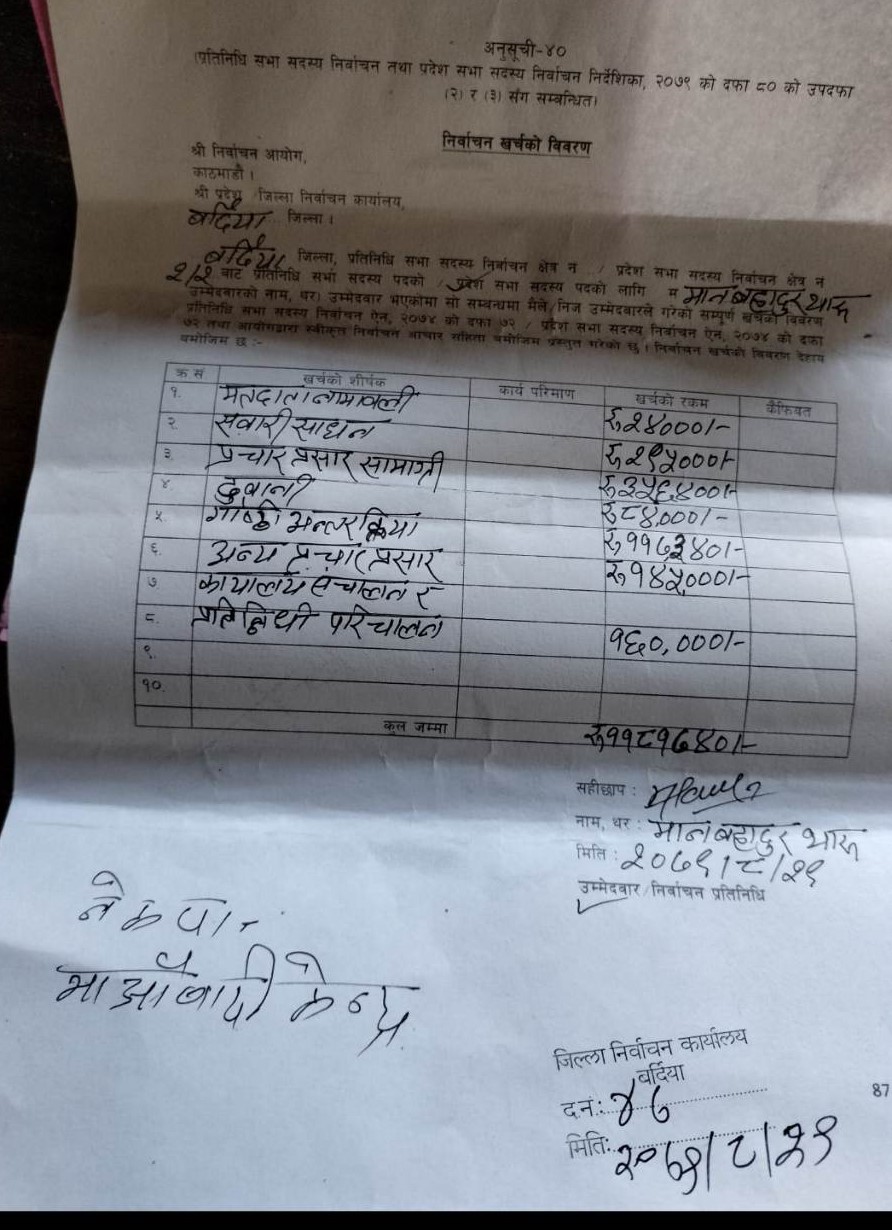 अनुसूची-४०
(प्रतिनिधि सभा सदस्य निर्वाचन तथा प्रदेश सभा सदस्य निर्वाचन निर्देशिका, २०७९ को दफा ८० को उपदफा
(२) र (३) संग सम्बन्धित।
निर्वाचन खर्चको विवरण
श्री निर्वाचन आयोग,
काठमाडौं ।
श्री प्रदेश /जिल्ला निर्वाचन कार्यालय,
बर्दिया जिल्ला ।
बर्दिया जिल्ला, प्रतिनिधि सभा सदस्य निर्वाचन क्षेत्र न / प्रदेश सभा सदस्य निर्वाचन क्षेत्र न
बाट प्रतिनिधि सभा सदस्य पदको / प्रदेश सभा सदस्य पदको लागि म मानबहादुर थारू
उम्मेदवारको नाम, थर) उम्मेदवार भएकोमा सो सम्बन्धमा मैले/निज उम्मेदवारले गरेको सम्पूर्ण खर्चको विवरण
प्रतिनिधि सभा सदस्य निर्वाचन ऐन, २०७४ को दफा ७२ / प्रदेश सभा सदस्य निर्वाचन ऐन, २०७४ को दफा
७२ तथा आयोगद्वारा स्वीकृत निर्वाचन आचार संहिता बमोजिम प्रस्तुत गरेको छु । निर्वाचन खर्चको विवरण देहाय
बमोजिम छ :-
क्र सं खर्चको शीर्षक कार्य परिमाण खर्चको रकम कैफियत
१. मतदाता नामावली रु २४०००।-
२. सवारी साधन रु २९५०००।-
३. प्रचार प्रसार सामाग्री रु ३५६,४००।-
४. ढुवानी रु ८४,०००।-
५. गोष्ठी अन्तरक्रिया रु ११७,३४०।-
६. अन्य प्रचार प्रसार रु १४५,०००।-
७ कार्यालय संचालन र
८. प्रतिनिधी परिचालन १६०,०००।-
९.
१०.
कूल जम्मा रु ११८१७४०।-
सहीछाप :
नाम, थर : मानबहादुर थारू
मिति : २०७९।८।२९
उम्मेदवार/निर्वाचन प्रतिनिधि
नेकपा-
माओवादी केन्द्र
जिल्ला निर्वाचन कार्यालय
बर्दिया
द.नं.: ४७
मिति: २०७९।८।२९
87